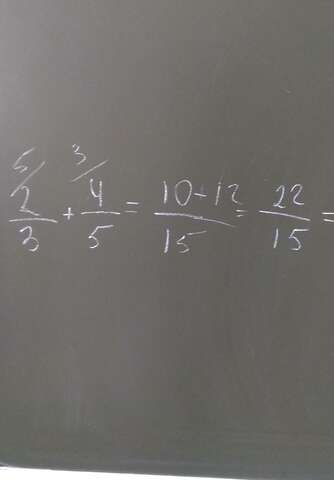 5/ 3/
2/3 + 4/5 = 10+12/15 = 22/15 =